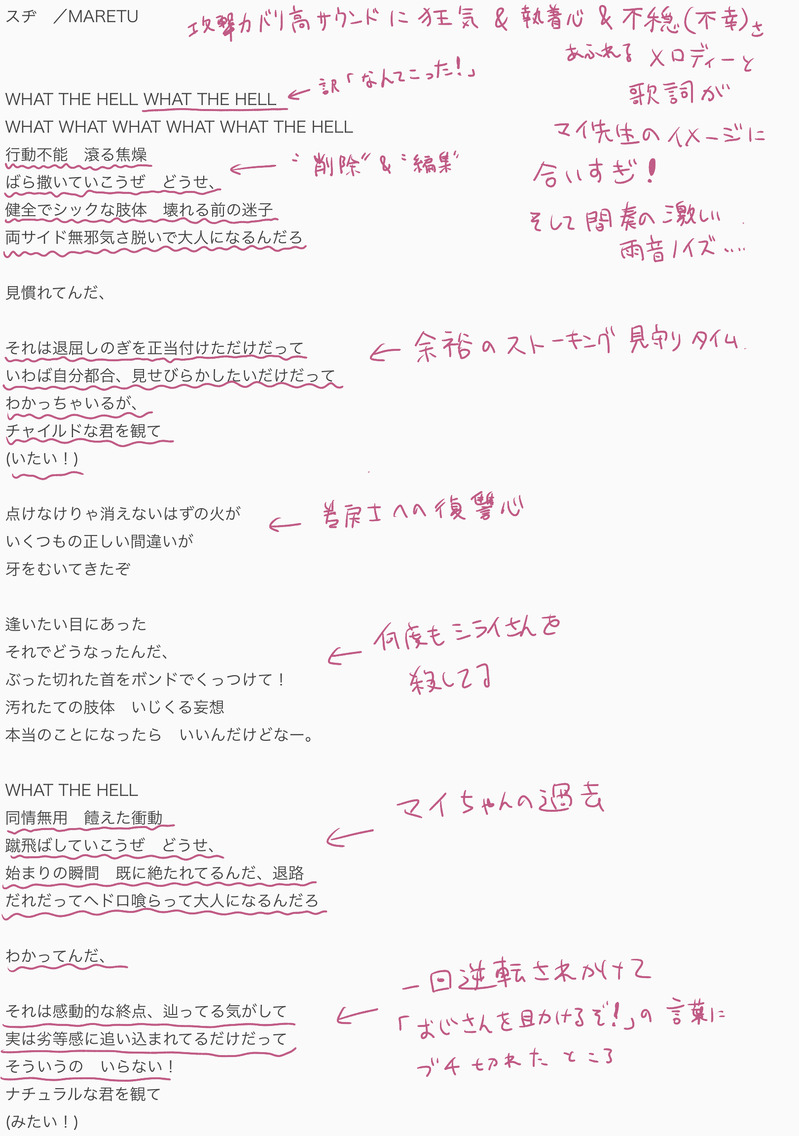 スヂ　／MARETU
攻撃力バリ高サウンドに狂気＆執着心＆不穏(不幸)さ
あふれるメロディーと
歌詞が
マイ先生のイメージに
合いすぎ！
そして間奏の激しい
雨音ノイズ….
WHAT THE HELL WHAT THE HELL
←訳「なんてこった！」
WHAT WHAT WHAT WHAT WHAT THE HELL
行動不能　滾る焦燥
← “削除”＆“編集”
ばら撒いていこうぜ　どうせ、
健全でシックな肢体　壊れる前の迷子
両サイド無邪気さ脱いで大人になるんだろ
見慣れてんだ、
それは退屈しのぎを正当付けただけだって
←余裕のストーキング見守りタイム
いわば自分都合、見せびらかしたいだけだって
わかっちゃいるが、
チャイルドな君を観て
(いたい！)
点けなけりゃ消えないはずの火が
への復讐心
いくつもの正しい間違いが
牙をむいてきたぞ
逢いたい目にあった
それでどうなったんだ、
←何度もミライさんを
殺してる
ぶった切れた首をボンドでくっつけて！
汚れたての肢体　いじくる妄想
本当のことになったら　いいんだけどなー。
WHAT THE HELL
同情無用　饐えた衝動
←マイちゃんの過去
蹴飛ばしていこうぜ　どうせ、
始まりの瞬間　既に絶たれてるんだ、退路
だれだってヘドロ喰らって大人になるんだろ
わかってんだ、
それは感動的な終点、辿ってる気がして
←一回逆転されかけて
「おじさんを助けるぞ！」の言葉に
ブチ切れたところ
実は劣等感に追い込まれてるだけだって
そういうの　いらない！
ナチュラルな君を観て
(みたい！)